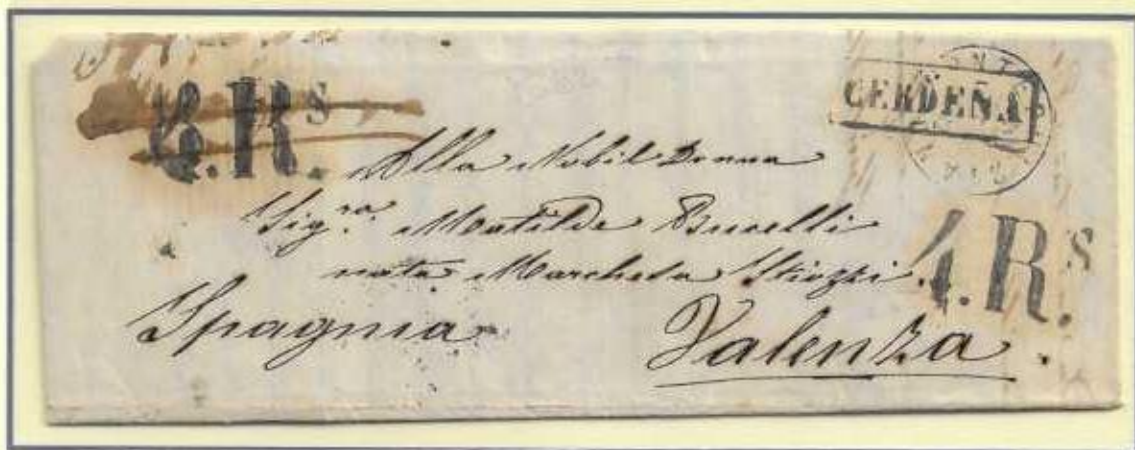 6.Rs.
CERDEÑA
Alla Nobil Donna
Sigra. Matilde Burelli
nata Marchesa
4.Rs.
Spagnia
Valenza.